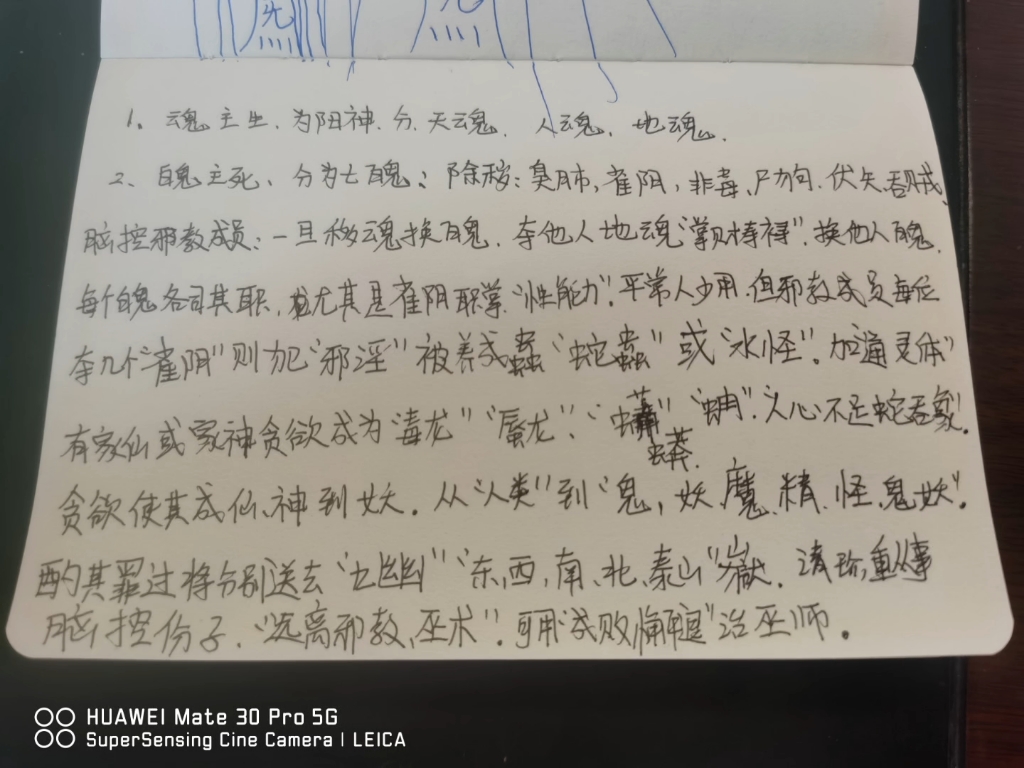 1、魂主生、为阳神.分.天魂、人魂、地魂.
2、魄主死、分为七魄:除秽;臭肺,雀阴,非毒、尸狗.伏矢.吞贼、
脑控邪教成员:一旦移魂换魄.夺他人地魂"
换他人魄.
每个魄各司其职,尤其是雀阴职掌"性能力".平常人少用.但邪教成员每位
夺几个"雀阴"则加"邪淫"被养成蠱"蛇蠱"或"水怪".加通灵体"
有家仙或家神贪欲成为"毒龙""蜃龙".蟒."人心不足蛇吞象.
贪欲使其成仙、神到妖.从"人类"到"鬼,妖.魔.精.怪.鬼妖".
酌其罪过将分别送去"七幽""东,西,南、北、泰山"嶽.请珍重
脑控份子."远离邪教、巫术".可用治巫师.
HUAWEI Mate 30 Pro 5G
SuperSensing Cine Camera | LEICA